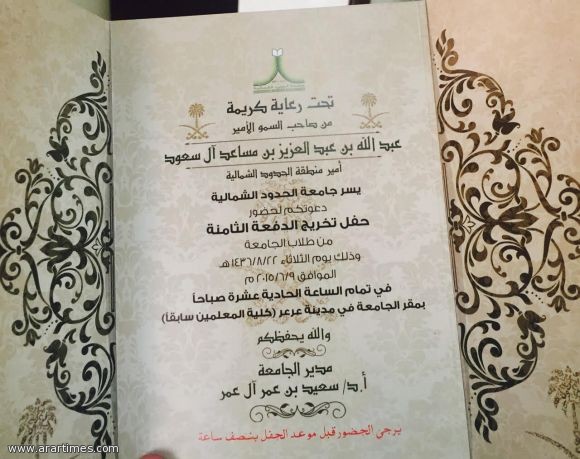 تحت رعاية كريمة
من صاحب السمو الأمير
عبد الله بن عبد العزيز بن مساعد آل سعود
أمير منطقة الحدود الشمالية
يسر جامعة الحدود الشمالية
دعوتكم لحضور
حفل تخريج الدفعة الثامنة
من طلاب الجامعة
وذلك يوم الثلاثاء ١٤٣٦/٨/٢٢هـ
الموافق ٢٠١٥/٦/٩ م
في تمام الساعة الحادية عشرة صباحاً
بمقر الجامعة في مدينة عرعر (كلية المعلمين سابقاً)
والله يحفظكم
مدير الجامعة
أ.د/ سعيد بن عمر آل عمر
يرجى الحضور قبل موعد الحفل بنصف ساعة
www.arartimes.com